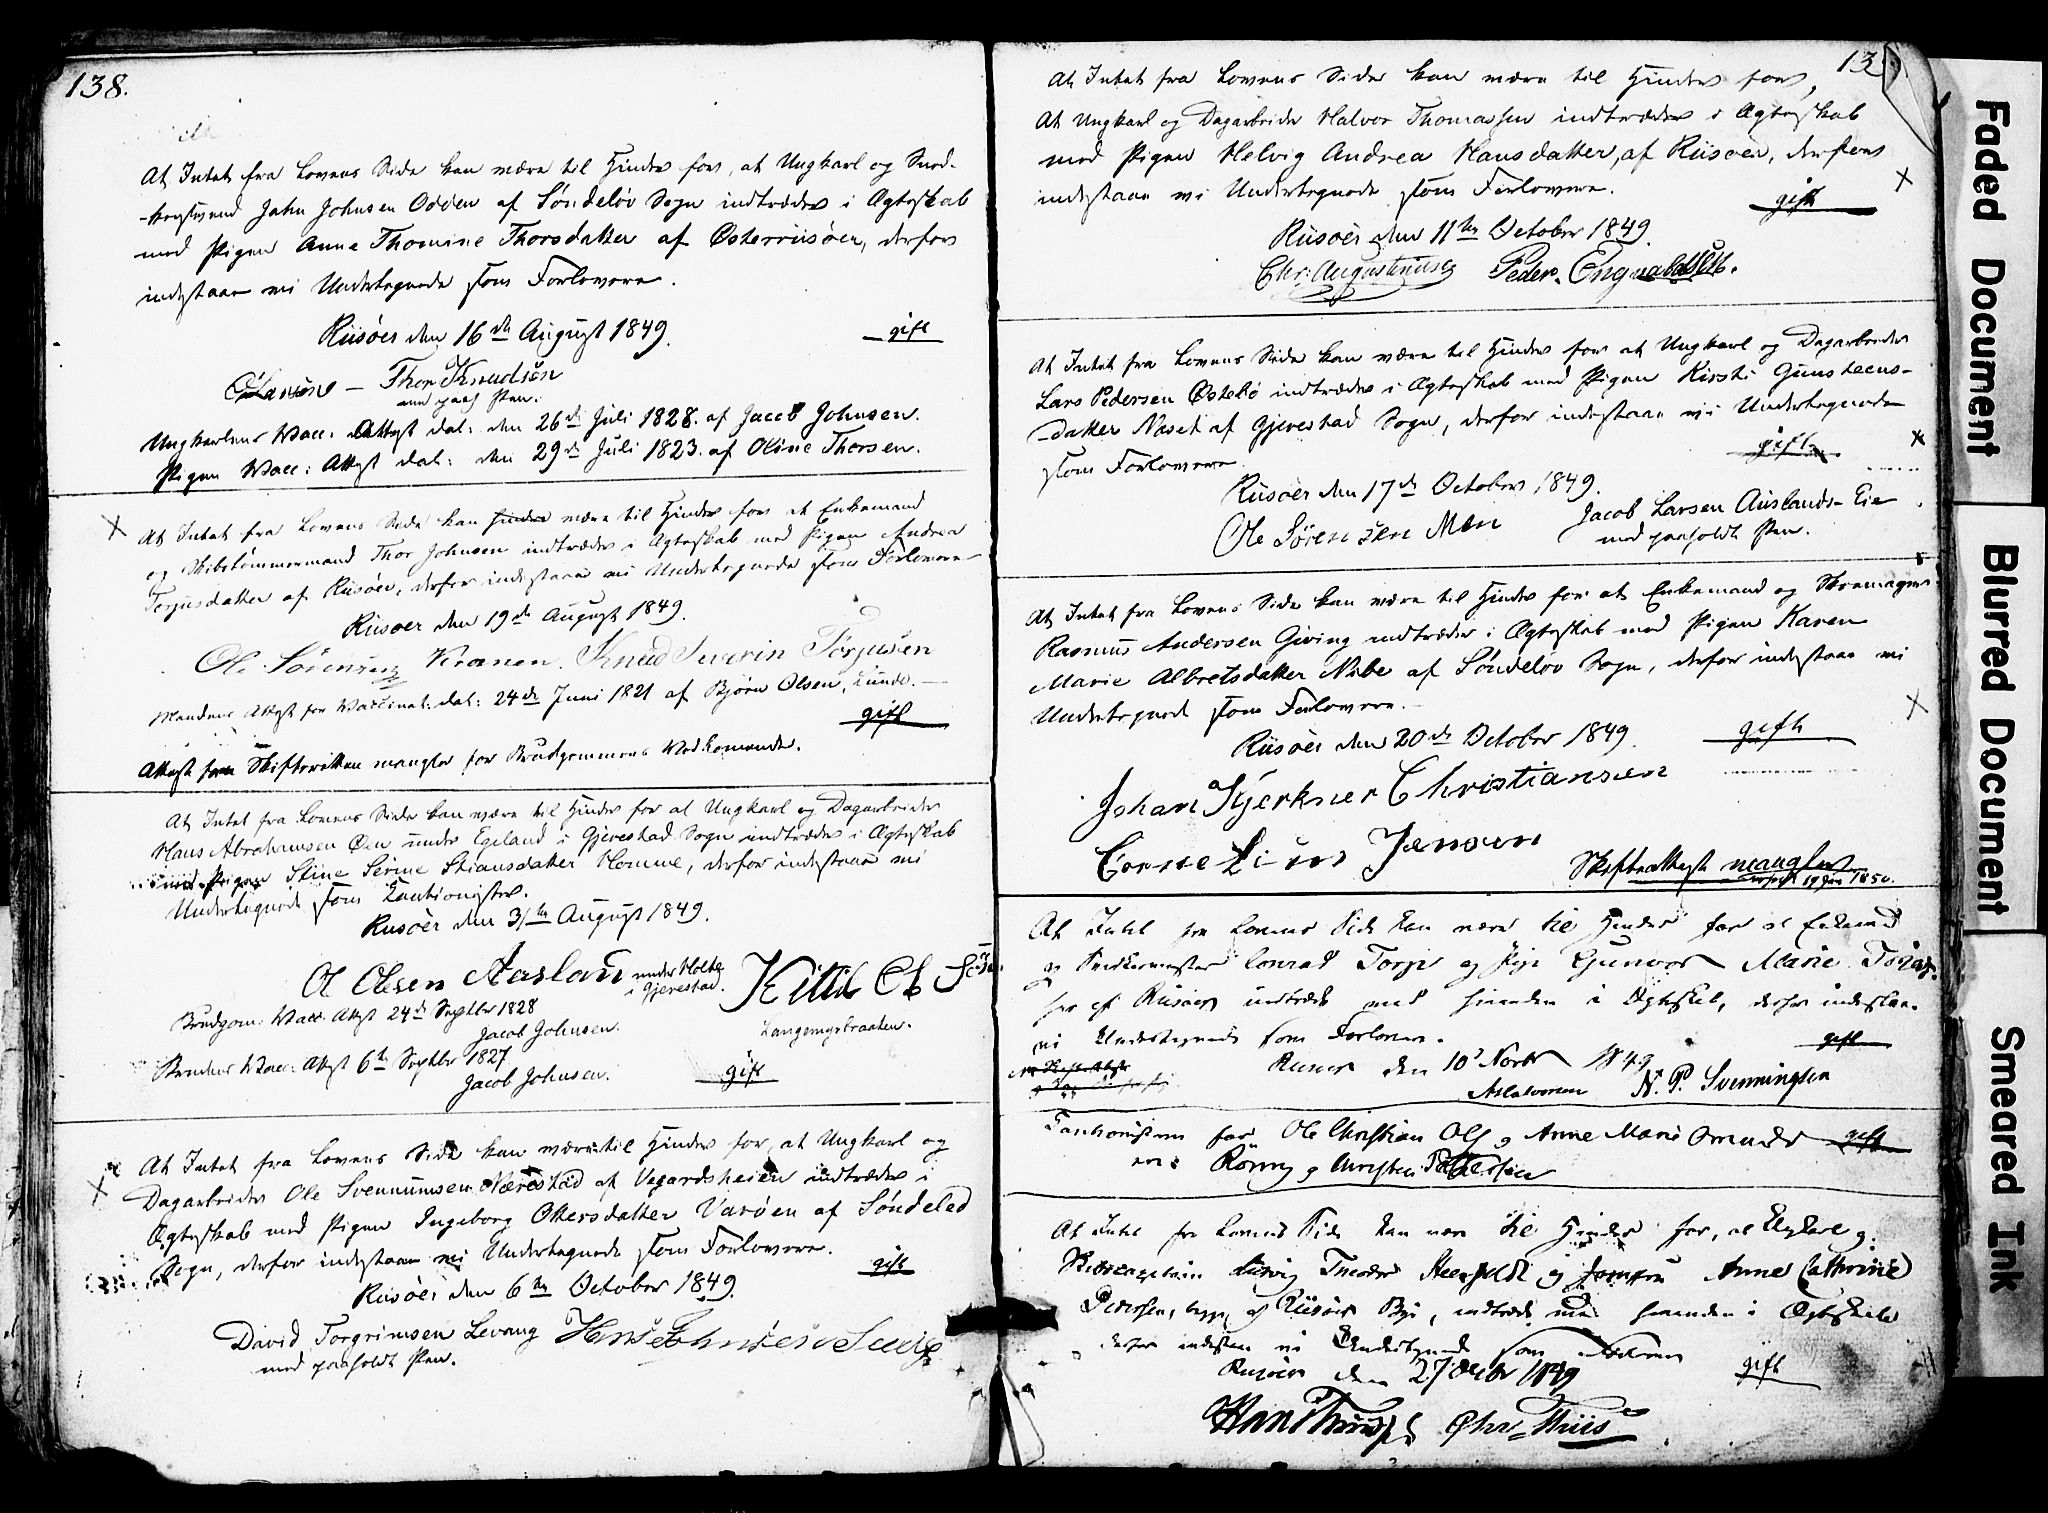 138.
At Intet fra Lovens Side kan være til Hinder for, at Ungkarl og Sned-
-kersvend John Johnsen Odden af Søndeløv Sogn indtræder i Ægteskab
med Pigen Anne Thomine Thorsdatter af Østerriisøer, derfor
indestaae vi Undertegnede som Forlovere.
Riisøer den 16de August 1849.
gift
Thor Knudsen
med paah Pen.
Ungkarlens Vacc: Attest dat: den 26de Juli 1828. af Jacob Johnsen.
Pigens Vacc: Attest dat: den 29de Juli 1823. af Oline Thorsen.
At Intet fra Lovens Side kan hinder være til Hinder for at Enkemand
og Skibstømmermand Thor Johnsen indtræder i Ægteskab med Pigen Andrea
Torjusdatter af Riisøer, derfor indestaae vi Undertegnede som Forlovere
Riisøer den 19de August 1849.
Ole Sørensen Kranen. Knud Severin Torjusen
Mandens Attest for Vaccinat: dat: 24de Juni 1821 af Bjørn Olsen, Lunde.
gift
Attest fra Skifteretten mangler for Brudgommens Vedkomende.
At Intet fra Lovens Side kan være til Hinder for at Ungkarl og Dagarbeider
Hans Abrahamsen Øen under Egeland i Gjerestad Sogn indtræder i Ægteskab
med Pigen Stine Serine Stiansdatter Homme, derfor indestaae vi
Undertegnede som Cautionister.
Riisøer den 31te August 1849.
Ol Olsen Aaslan under Holte
i Gjerestad.
Kittil
Langemyrbraaten.
Brudgom: Vacc. Attest 24de Septbr 1828
Jacob Johnsen.
Brudens Vacc: Attest 6te Septbr 1827
Jacob Johnsen.
gift
At Intet fra Lovens Side kan være til Hinder for, at Ungkarl og
Dagarbeider Ole Svennumsen Nærestad af Vegardsheien indtræder i
Ægteskab med Pigen Ingeborg Ottersdatter Varøen af Søndeled
Sogn, derfor indestaae vi Undertegnede som Forlovere.
gift
Riisøer den 6te October 1849.
David Torgrimsen Levang
med paaholdt Pen.
13
At Intet fra Lovens Side kan være til Hinder for,
At Ungkarl og Dagarbeider Halvor Thomassen indtræder i Ægteskab
med Pigen Helvig Andrea Hansdatter, af Riisøer, derfor
indestaae vi Undertegnede som Forlovere.
gift
Riisøer den 11te October 1849.
Chr: Augustinusen Peder.
At Intet fra Lovens Side kan være til Hinder for at Ungkarl og Dagarbeider
Lars Pedersen Østebø indtræder i Ægteskab med Pigen Kirsti Gunsteens-
-datter Næset af Gjerestad Sogn, derfor indestaae vi Undertegnede
som Forlovere.
gift
Riisøer den 17de October 1849.
Ole Sørensen Mæn
Jacob Larsen Auslands-Eie
med paaholdt Pen.
At Intet fra Lovens Side kan være til Hinder for at Enkemand og Skomager
Rasmus Andersen Giving indtræder i Ægteskab med Pigen Karen
Marie Albretsdatter Nibe af Søndeløv Sogn, derfor indestaae vi
Undertegnede som Forlovere.
gift
Riisøer den 20de October 1849.
Johan Kjerkner Christiansen
Cornelius Jensen
Skifteattest mangler
1850.
At Intet fra Lovens Side kan være til Hinder for at Enkemand
og Snedkermester Conrad Torp og Pige Gunvor Marie
af Riisøer indtræde med hinanden i Ægteskab, derfor indestaae
vi Undertegnede som Forlovere.
gift
Riisøer den 10 Novbr 1849
N. P. Svenningsen
for Ole Christian Ols og Anne Marie gift
At Intet fra Lovens Side kan være til Hinder for, at Ungkarl og
Anne Cathrine
Pedersen, af Riisøer By, indtræde med hinanden i Ægteskab
derfor indestaae vi Undertegnede som Forlovere
gift
Riisøer den 27 Octbr 1849
Faded Document
Blurred Document
Smeared Ink